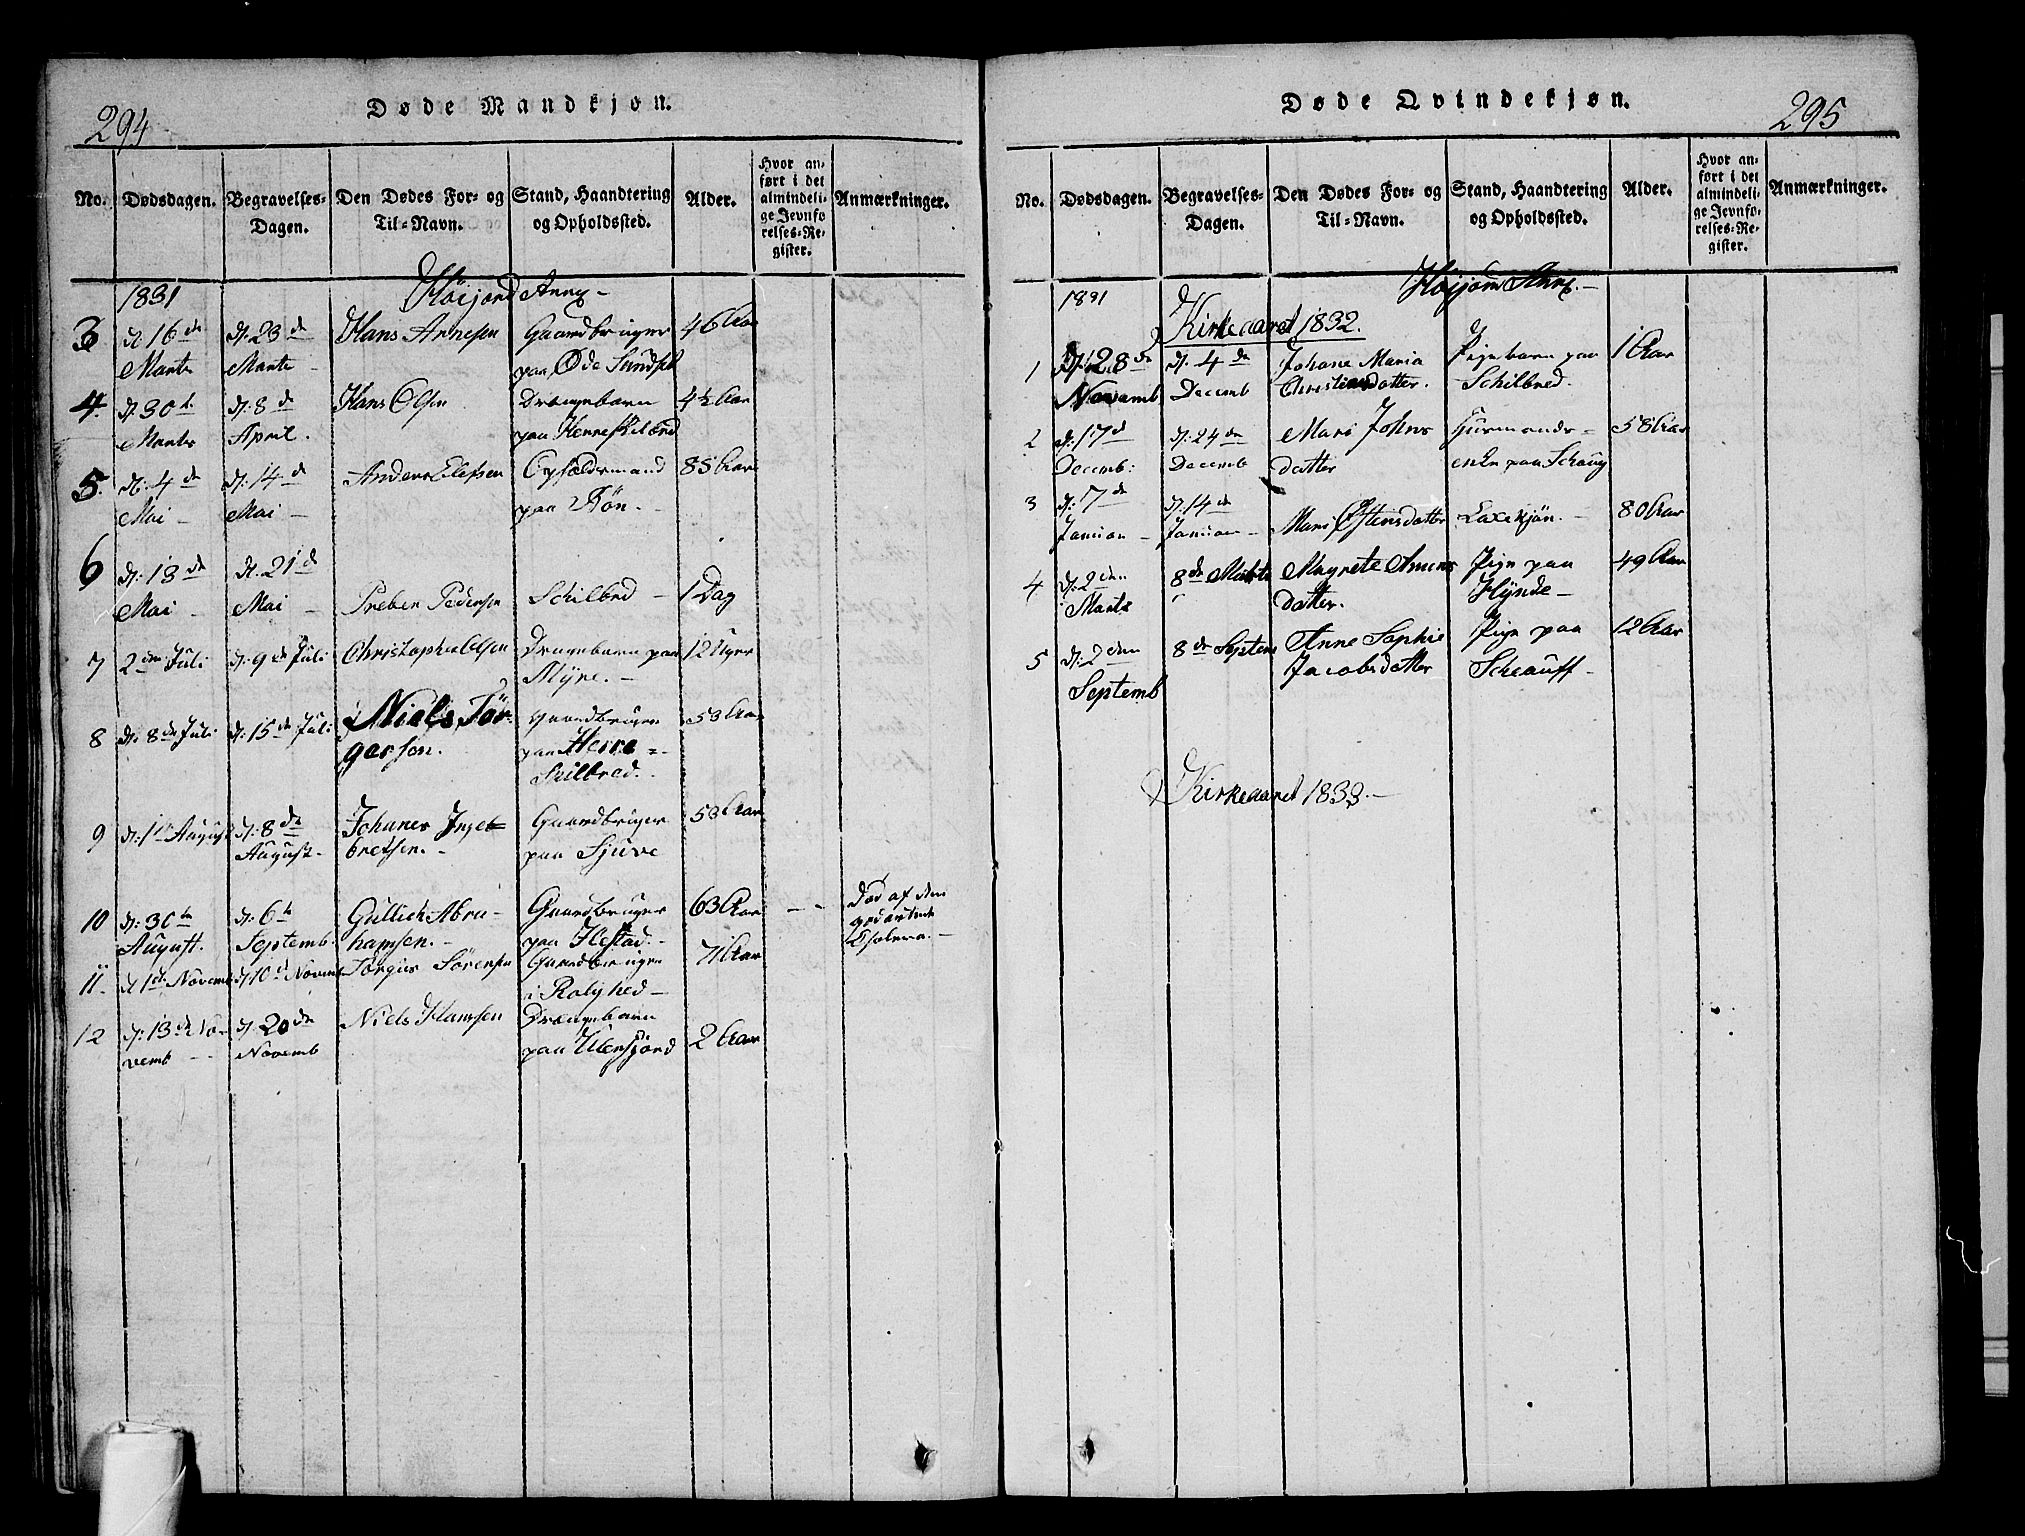 294
Døde Mandkjøn.
No. Dødsdagen. Begravelses-Dagen. Den Dødes For- og Til-Navn. Stand, Haandtering og Opholdssted. Alder. Hvor anført i det almindelige Jevnførelses-Register. Anmærkninger.
1831 Höijord Anne
3 d. 16de Marts d. 23de Marts Hans Arnesen Gaardbruger paa Øde Sundset 46 Aar
4. d. 30te Marts d. 8de April. Hans Olsen Drengebarn paa 4½ Aar
5. d. 4de Mai d. 14de Mai Anders Elefsen Opholdsmand paa Rön. 85 Aar
6 d. 18de Mai d. 21d Mai Preben Pedersen Schilbred 1 Dag
7 2den Juli d. 9de Juli Christopher Olsen Drengebarn paa Myre. 12 Uger
8 d. 8de Juli d. 15de Juli Niels Jörgersen. Gaardbruger paa Herre= Skilbred. 53 Aar
9 d. 1te August d. 8de August. Johanes Ingebretsen. Gaardbruger paa Sjuve 53 Aar
10 d. 30te August. d. 6te Septemb. Gullich Abrahamsen. Gaardbruger paa Hestad. 63 Aar Död af den Cholera.
11. d. 1ste Novemb d. 10d Novemb Jörgen Sörensen Gaardbruger i Rolighed 71 Aar
12 d. 13de Novemb d. 20de Novemb Niels Hansen Drengebarn paa 2 Aar
295
Døde Qvindekjøn.
No. Dødsdagen. Begravelses-Dagen. Den Dødes For- og Til-Navn. Stand, Haandtering og Opholdssted. Alder. Hvor anført i det almindelige Jevnførelses-Register. Anmærkninger.
1831 Höijord Anne
Kirkeaaret 1832.
1 d. 28de Novemb d. 4de Decemb Johane Maria Christiansdatter. Pigebarn paa Schilbred. 1 Aar
2 d. 17d Decemb: d. 24de Decemb Mari Johns datter Huusmands-enke paa Schaug 58 Aar
3 d. 7de Januar d. 14de Januar Mari Östensdatter Laxekjön. 80 Aar
4 d. 2den Marts 8de Marts Magrete datter. Pige paa Hynde 49 Aar
5 d. 2den Septemb 8de Septem Anne Sophie Jacobsdatter Pige paa Scheauff 12 Aar
Kirkeaaret 1833.